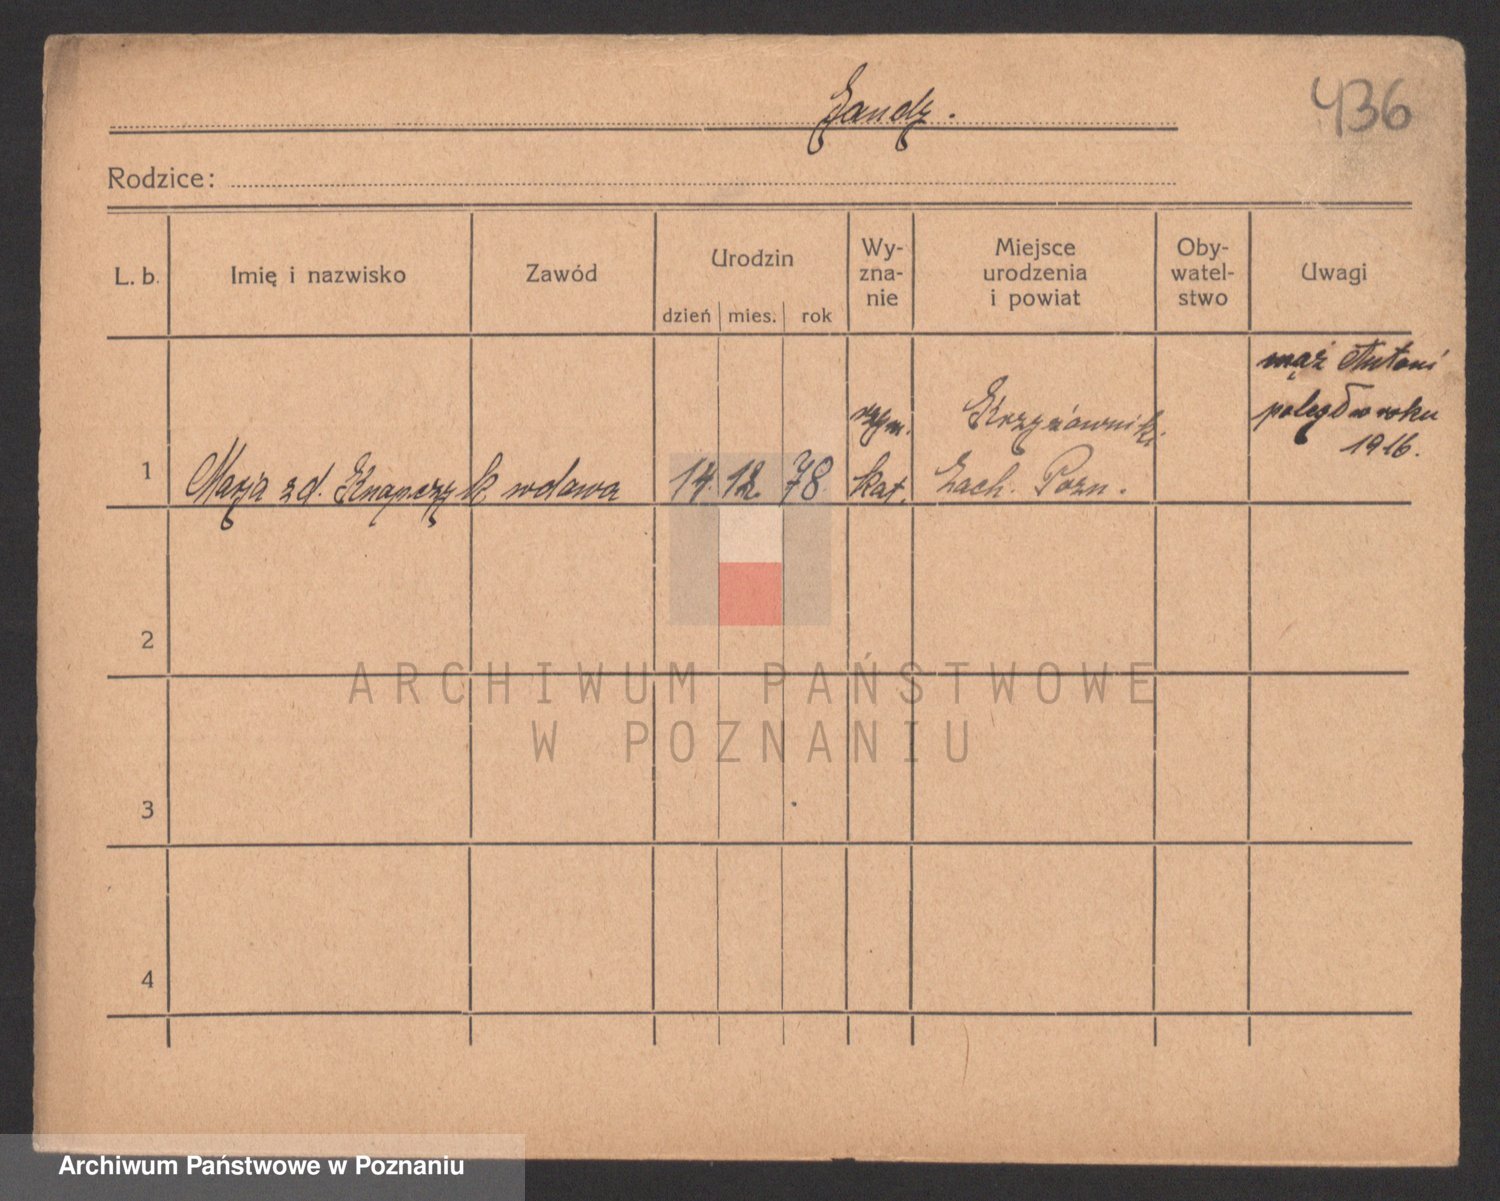 Gandz.
436
Rodzice:
L. b. Imię i nazwisko Zawód Urodzin dzień mies. rok Wy-zna-nie Miejsce urodzenia i powiat Oby-watel-stwo Uwagi
mąż Antoni
poległ w roku
1916.
rzym. Krzyżowniki
1 Marja zd. Knapczyk. wdowa 14. 12. 78 kat. Zach. Pozn.
2
3
4
ARCHIWUM PAŃSTWOWE
W POZNANIU
Archiwum Państwowe w Poznaniu